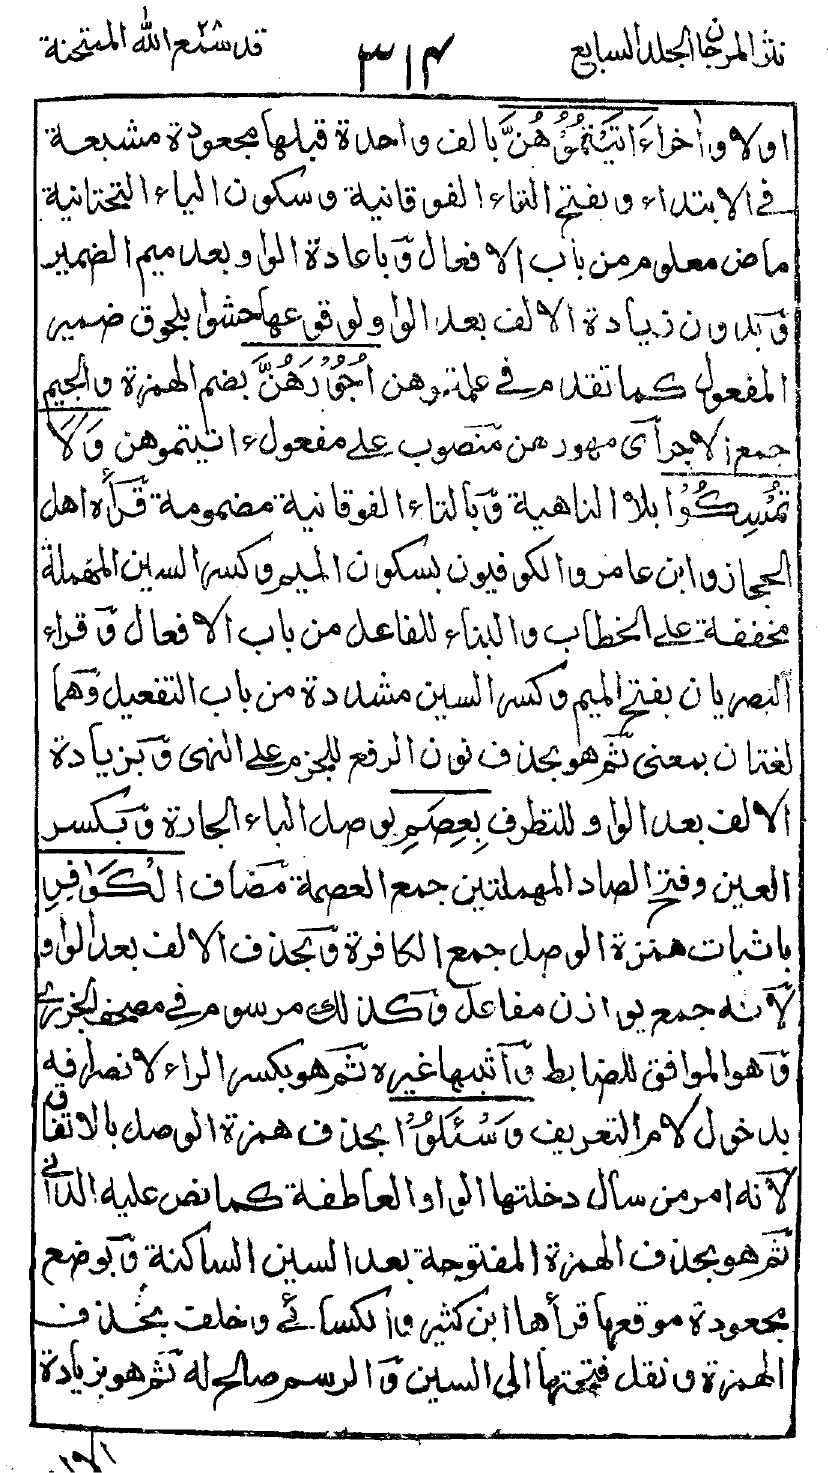 نثر المرجان الجلد السابع ٣١٤ قد سمع الله ٢٨ الممتحنة
اولا واخراءَ اتَيۡتُمُوۡهُنَّ بالف واحدة قبلها مجعودة مشبعة
فے الابتداء وبفتح التاء الفوقانية وسكون الياء التحتانية
ماض معلوم من باب الافعال وباعادة الواو بعد ميم الضمير
وبدون زيادة الالف بعد الواو لوقوعها حشوا بلحوق ضمير
المفعول كما تقدم فے علمتموهن اُجُوۡرَهُنَّ بضم الهمزة والجيم
جمع الاجر اى مهورهن منصوب على مفعول ءاتيتموهن وَلَا
تُمۡسِكُوۡا بلا الناهية وبالتاء الفوقانية مضمومة قرأه اهل
الحجاز وابن عامر والكوفيون بسكون الميم وكسر السين المهملة
مخففة على الخطاب والبناء للفاعل من باب الافعال وقراء
البصريان بفتح الميم وكسر السين مشددة من باب التفعيل وهما
لغتان بمعنى ثم هو بحذف نون الرفع للجزم على النهى وبزيادة
الالف بعد الواو للتطرف بِعِصَمِ بوصل الباء الجارة وبكسر
العين وفتح الصاد المهملتين جمع العصمة مضاف الۡكَوَافِرِ
باثبات همزة الوصل جمع الكافرة وبحذف الالف بعد الواو
لانه جمع يوازن مفاعل وكذلك مرسوم فے مصحف الجزرى
وهو الموافق للضابط واثبتها غيره ثم هو بكسر الراء لانصرافه
بدخول لام التعريف وَسۡئَلُوۡا بحذف همزة الوصل بالاتفاق
لانه امر من سأل دخلتها الواو العاطفة كما نص عليه الدانى
ثم هو بحذف الهمزة المفتوحة بعد السين الساكنة وبوضع
مجعودة موقعها قرأها ابن كثير والكسائے وخلف بحذف
الهمزة ونقل فتحتها الى السين والرسم صالح له ثم هو بزيادة